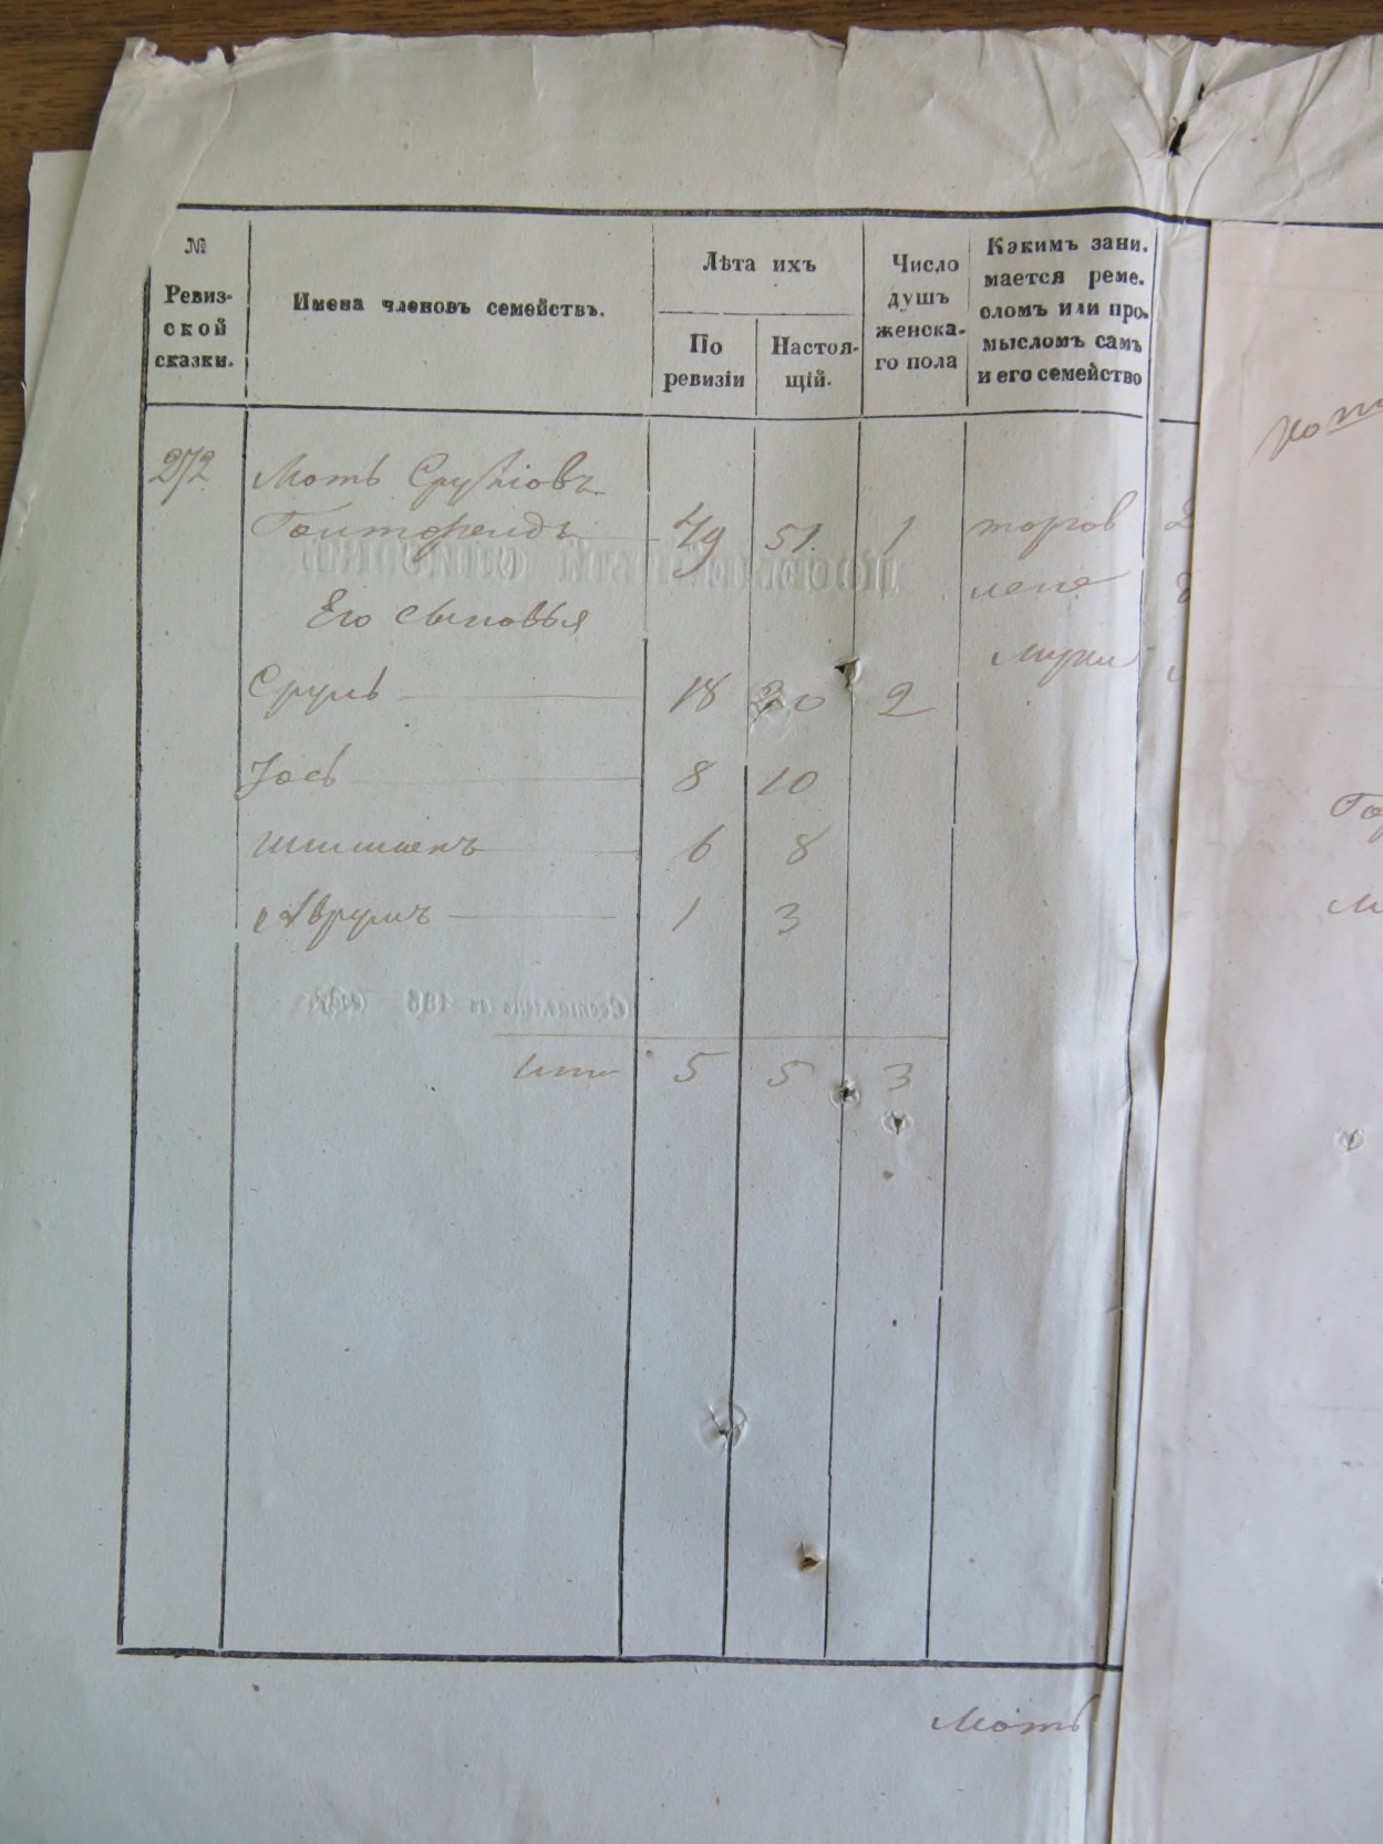 №
Ревиз-
ской
сказки.
Имена членовъ семействъ.
Лѣта ихъ
По
ревизіи
Настоя-
щій.
Число
душъ
женска-
го пола
Какимъ зани.
мается реме.
сломъ или про.
мысломъ самъ
и его семейство
272 Моть Срулiовъ
49 51. 1 торгов
Его сыновья
Сруль 18 20 2
Іось 8 10
6 8
Аврумъ 1 3
5 5 3
Моть